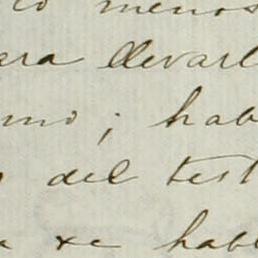 lo menos
ara llevarl
mo; hab
del test
se habl